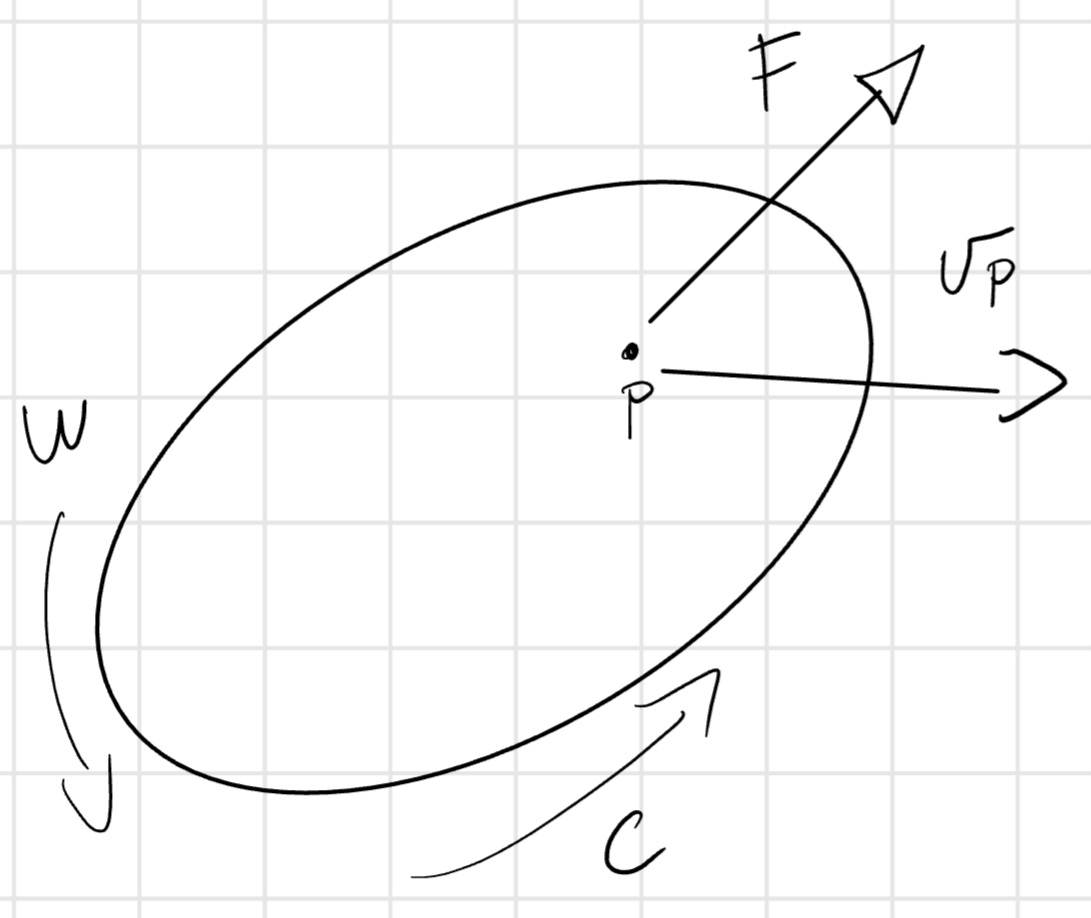 F
Vp
P
W
C